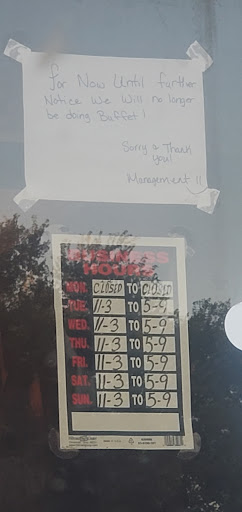 For Now Until further
Notice We Will no longer
be doing Buffet!
Sorry & Thank
You!
Management !!
BUSINESS
HOURS
MON. CLOSED TO CLOSED
TUE. 11-3 TO 5-9
WED. 11-3 TO 5-9
THU. 11-3 TO 5-9
FRI. 11-3 TO 5-9
SAT. 11-3 TO 5-9
SUN. 11-3 TO 5-9